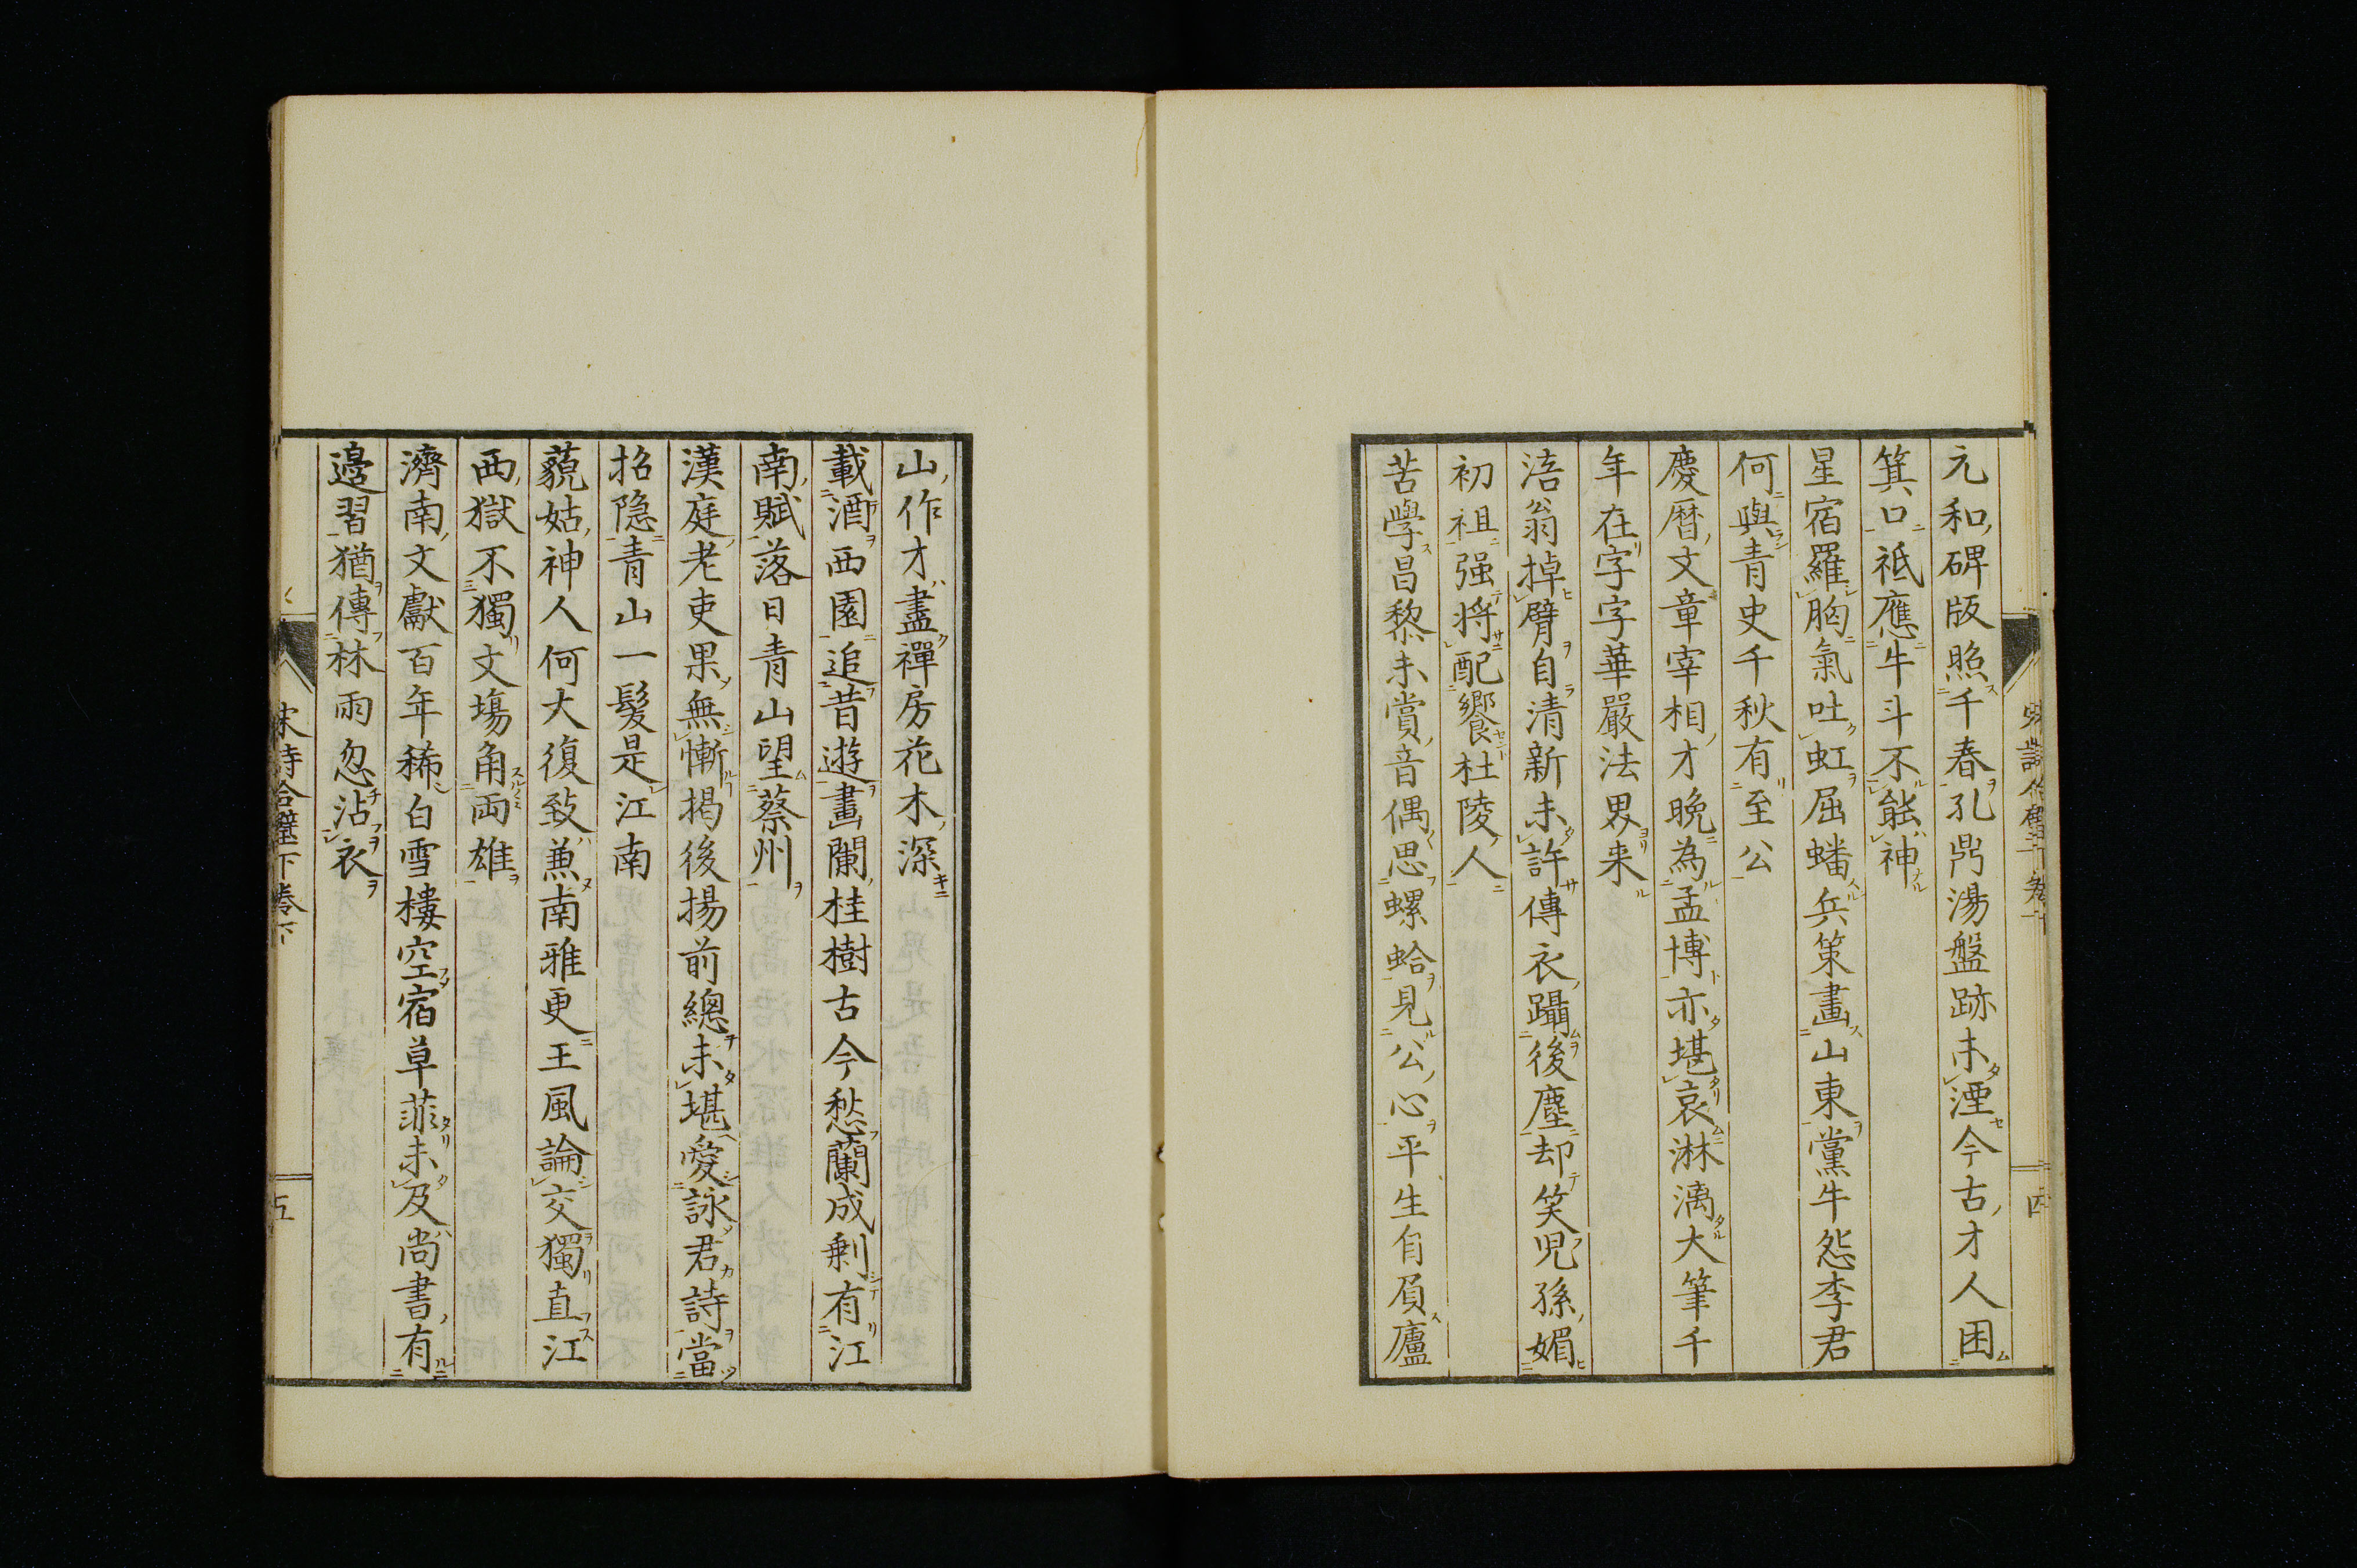 元和碑版照千春孔鼎湯盤跡未湮今古才人困
箕口祗應牛斗不能神
星宿羅胸氣吐虹屈蟠兵策畫山東黨牛怨李君
何與青史千秋有至公
慶曆文章宰相才晚為孟博亦堪哀淋漓大筆千
年在字字華嚴法界来
涪翁掉臂自清新未許傳衣躡後塵却笑児孫媚
初祖强将配饗杜陵人
苦學昌黎未賞音偶思螺蛤見公心平生自負廬
山作才盡禪房花木深
載酒西園追昔遊畫闌桂樹古今愁蘭成剰有江
南賦落日青山望蔡州
漢庭老吏果無慚揭後揚前總未堪愛詠君詩當
招隐青山一髮是江南
藐姑神人何大復致兼南雅更王風論交獨直江
西獄不獨文場角両雄
濟南文獻百年稀白雪樓空宿草菲未及尚書有
邉習猶傳林雨忽沾衣
宋詩合璧下卷下
五